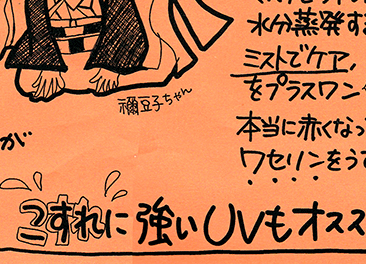 水分蒸発す
ミストでケア,
をプラスワン
禰豆子ちゃん
本当に赤くなっ
が
ワセリンをう
こすれに強いUVもオスス